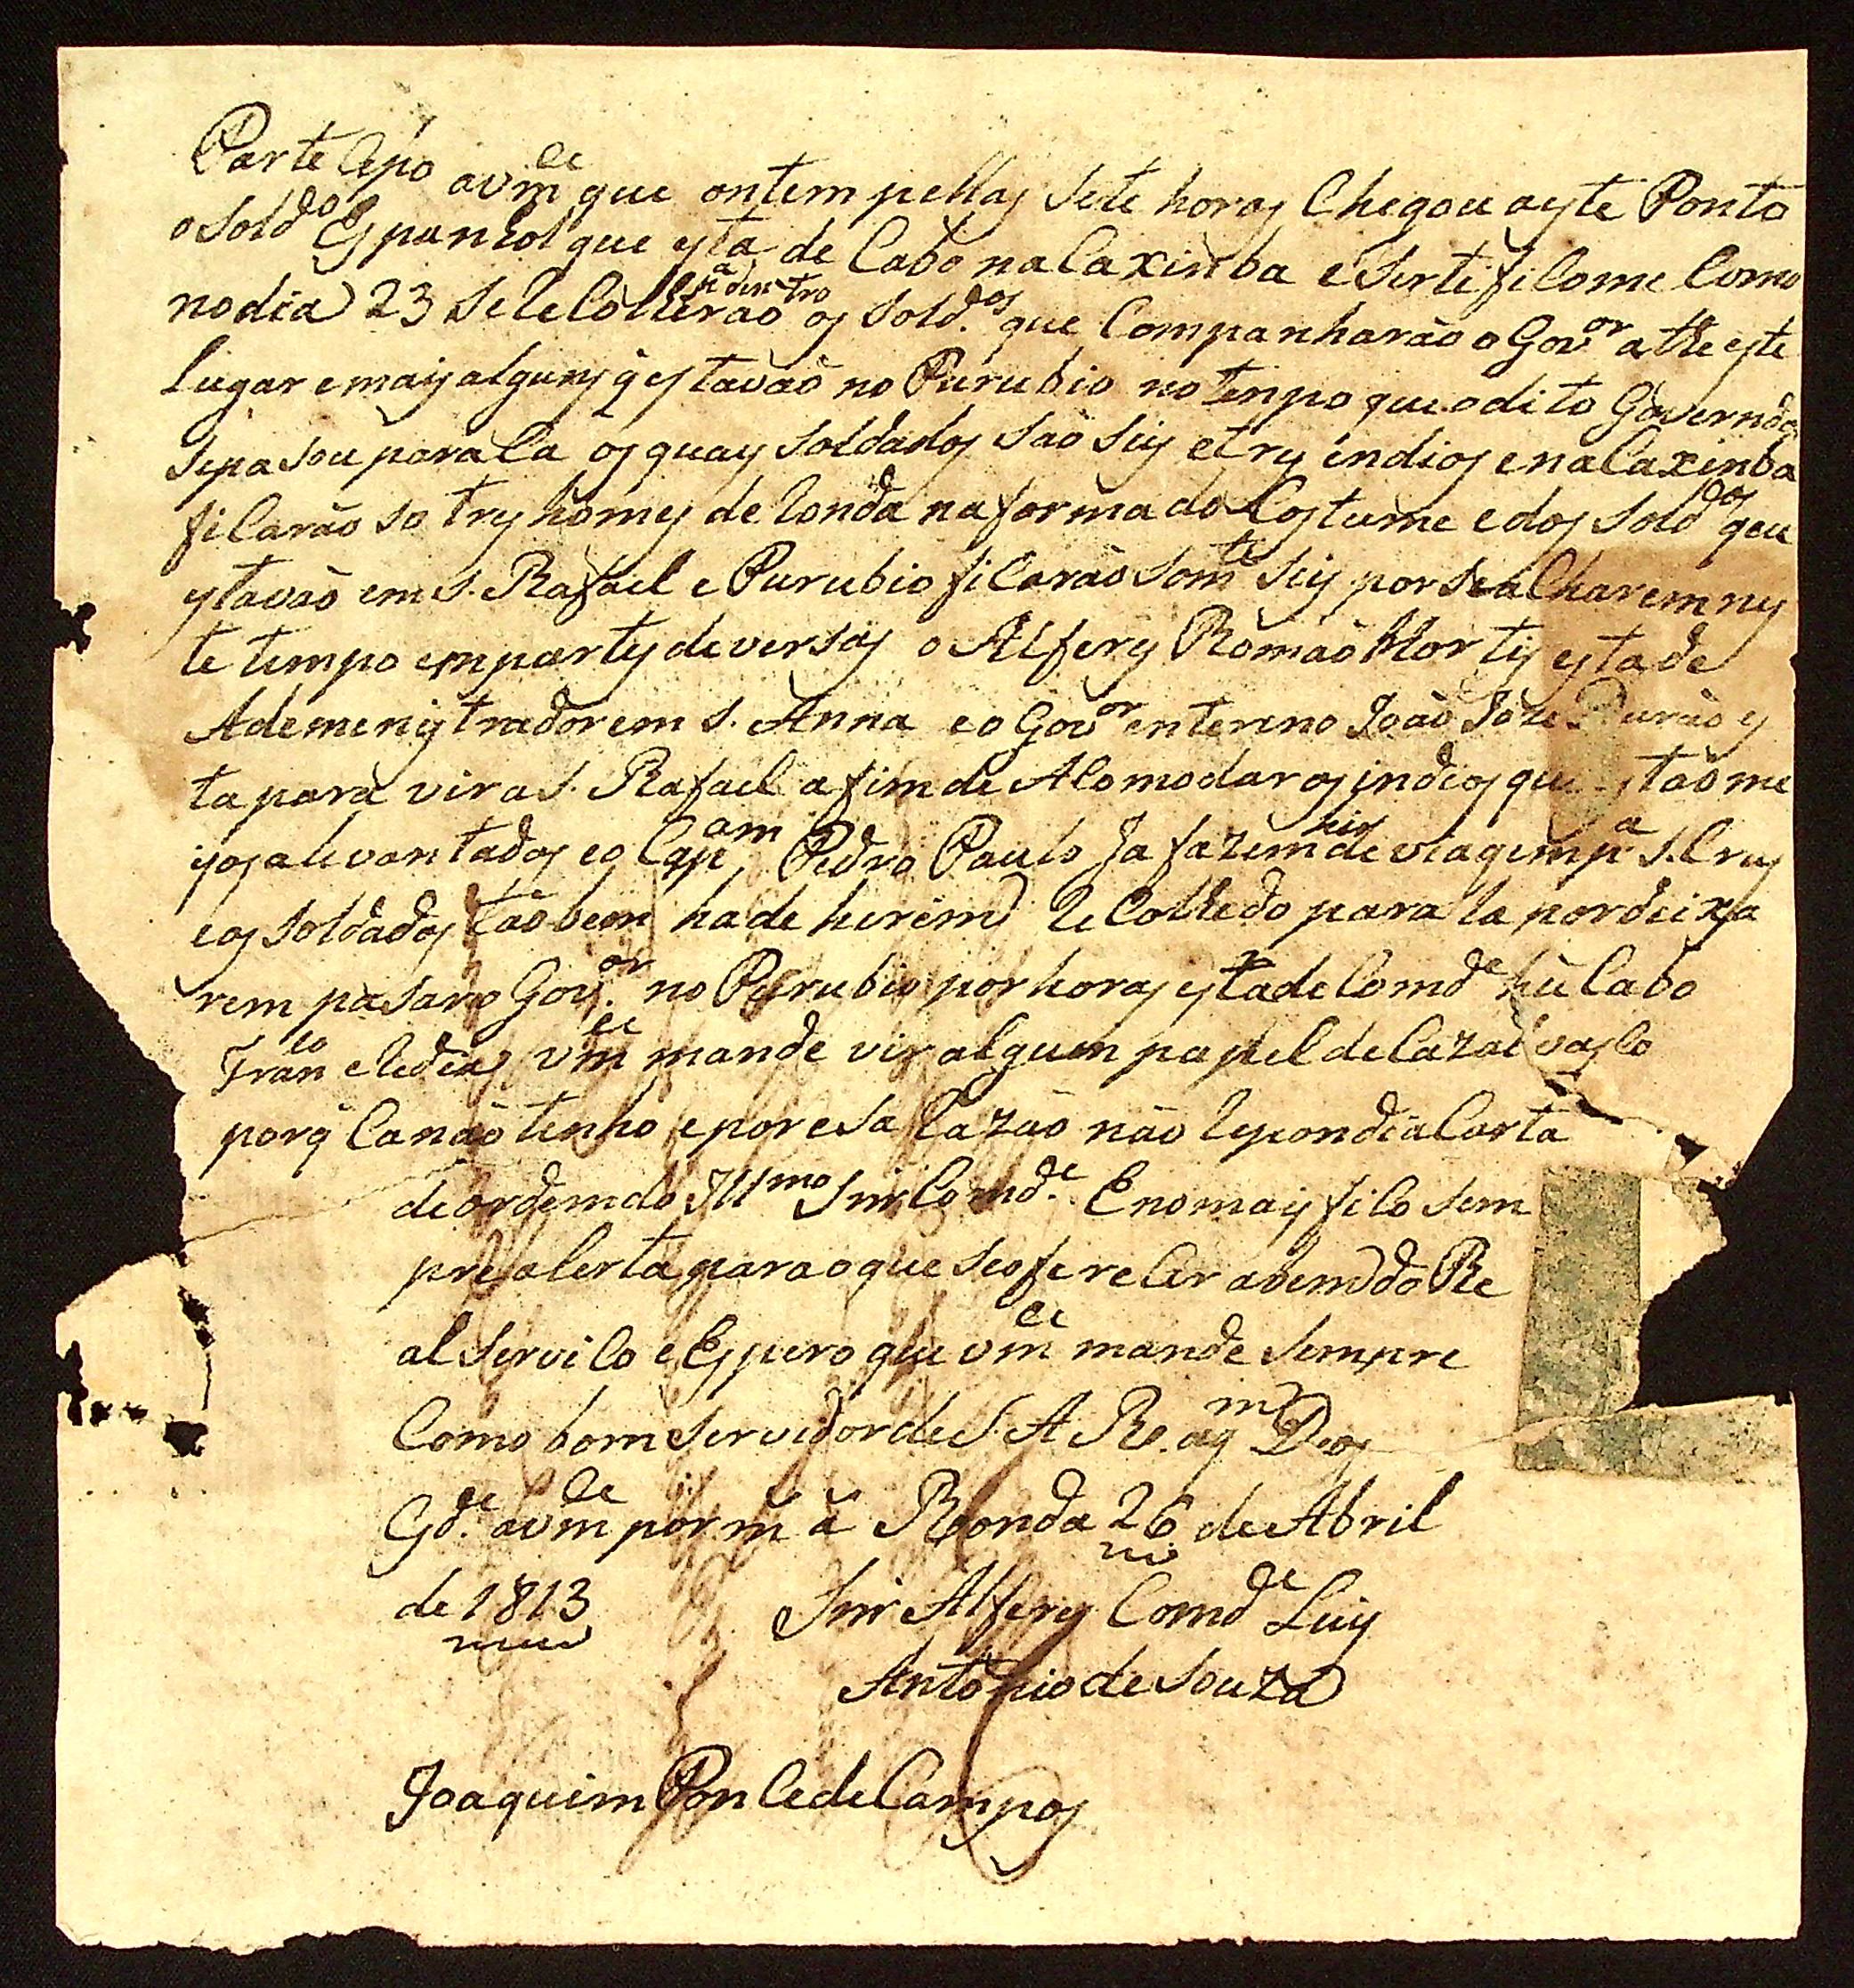 Partecipo avm.ce que ontem pellas sete horas Chegou aeste Ponto
o sold.do Espaniol que esta de Cabo na Caxinba e Sertificome Como
no dia 23 se recolherão p.a dentro os sold.os que Companharão o Gov.or athe este
Lugar e mais alguns q̃ estavão no Purubio no tenpo que o dito Governdor
sepasou para la os quais soldados são seis e tres indios e na Caxinba
ficarão so tres homes de Ronda na forma do Costume e dos sold.dos qeu
estavão em S. Rafael e Purubio ficarão som.te seis por se alCharem nes
te tempo em partes deversas o Alferes Romão Mortis esta de
Ademenistrador em S. Anna e o Gov.or entereno João Joze Durão es
ta para vir a S. Rafael a fim de Acomodar os indios que estão me
yos alivantados e o Cap.am Pedro Paulo Ja fazem hir de viagem p.a S. Crus
e os soldados tãobem hade hirem recolhedo para la por deixa
rem pasar o Gov.or no Purubio por horas esta de Comd.e hũ Cabo
Fran.co vm.ce mande vir algum papel de Cazao vasco
porq̃ Ca não tenho e por esa razão não respondi a Carta
de ordem do Ill.mo Snr Comd.e Eno mais fico sem
pre alerta para o que se oferecer a bem do Re
al Servico e Espero que vm.ce mande sempre
Como bom servidor de S. A. R. a q.m Deos
G.de a vm.ce por m.s a.s Ronda 26 de Abril
de 1813 Snr Alferes Comd.e Luis
Antonio de Souza
Joaquim Ponce de Campos